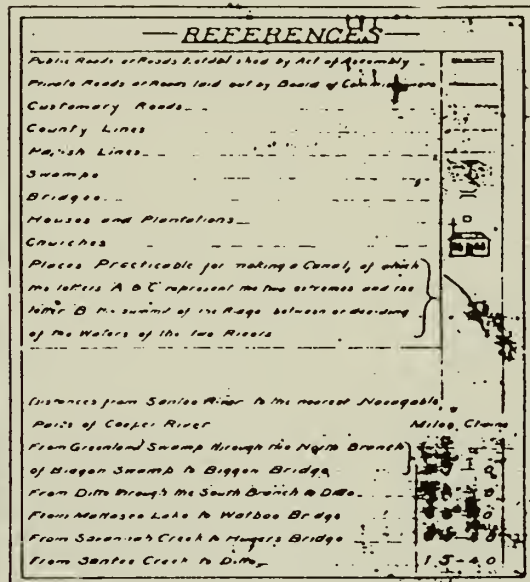 REFERENCES
Public Roads or Roads Established by Act of Assembly
Private Roads or Roads laid out by Board of Commissioners
Customary Roads
County Lines
Parish Lines
Swamps
Bridges
Houses and Plantations
Churches
Places Practicable for making a Canal, of which
the letters A B C represent the two extremes and the
letter B the summit of the Ridge between or dividing
of the Waters of the two Rivers
Distances from Santee River to the nearest Navagable
Parts of Cooper River Miles, Chains
From Greenland Swamp through the North Branch
of Biggon Swamp to Biggon Bridge
From Ditto through the South Branch to Ditto
From Mattasee Lake to Watboo Bridge
From Savannah Creek to Hugers Bridge
From Santee Creek to Ditto 15-40